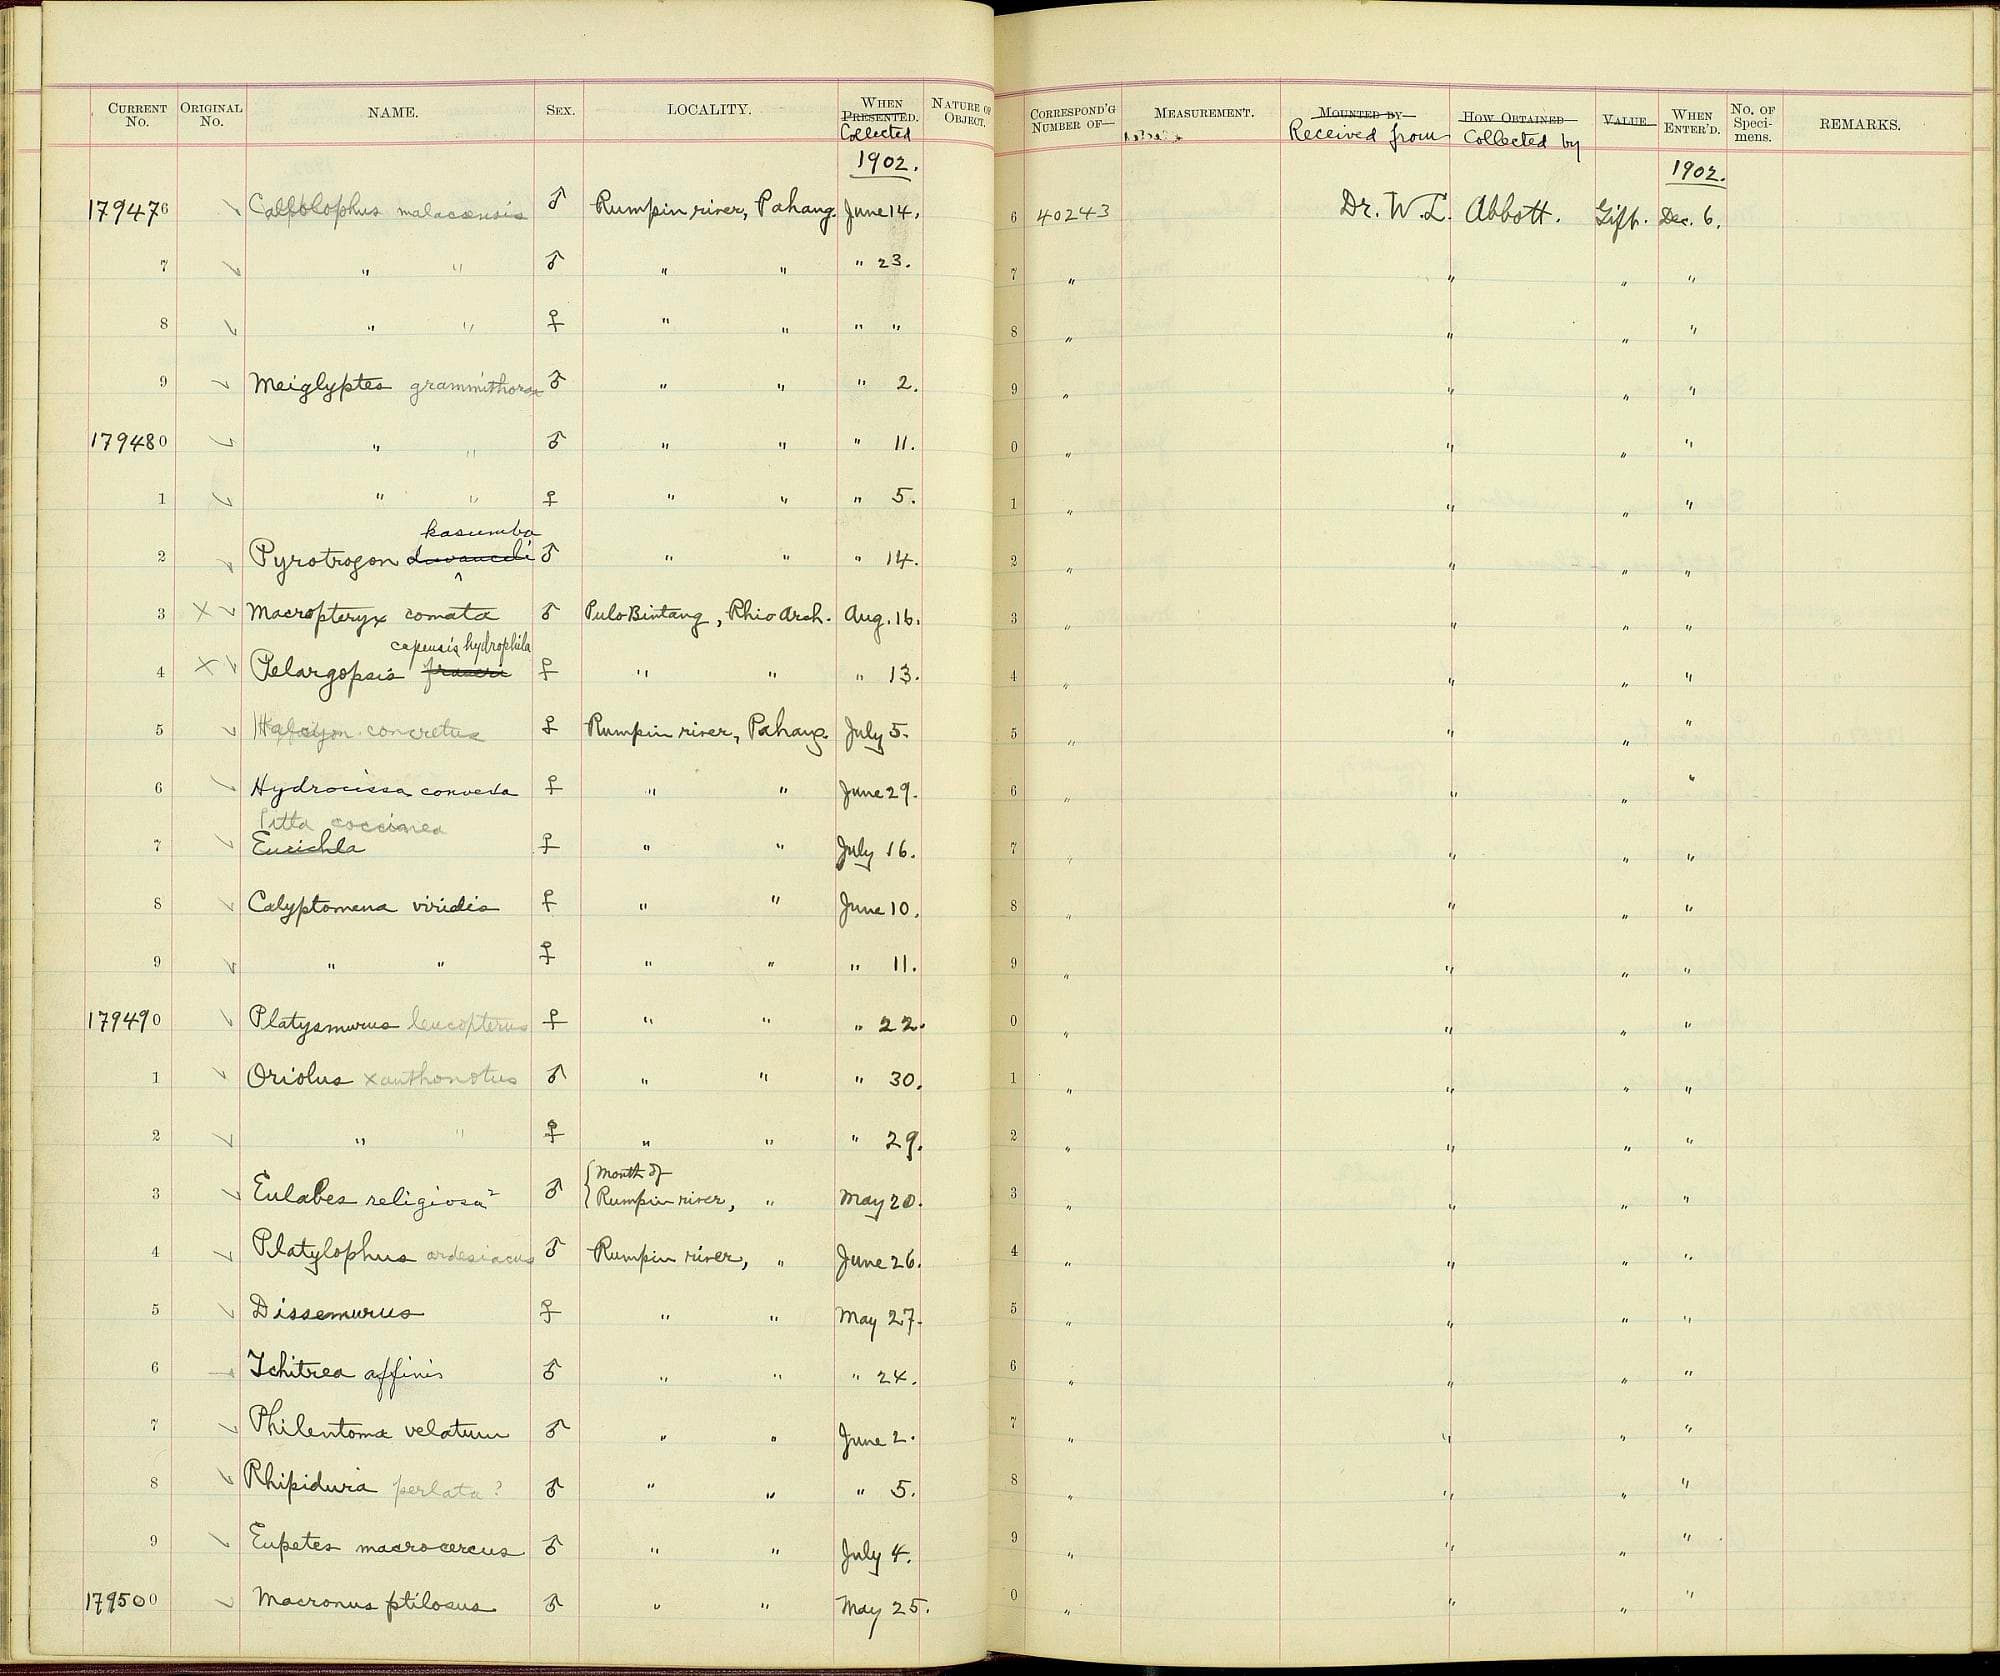 CURRENT No. ORIGINAL No. NAME. SEX. LOCALITY. WHEN PRESENTED. Collected NATURE OF OBJECT. CORRESPOND'G NUMBER OF— MEASUREMENT. MOUNTED BY— Received from HOW OBTAINED Collected by VALUE. WHEN ENTER'D. No. OF Speci-mens. REMARKS.
1902. 1902.
179476 malaccensis ♂ Rumpin river, Pahang. June 14. 6 40243 Dr. W. L. Abbott. Gift. Dec. 6.
7 " " ♂ " " " 23. 7 " " " "
8 " " ♀ " " " " 8 " " " "
9 Meiglyptes grammithorax ♂ " " " 2. 9 " " " "
179480 " " ♂ " " " 11. 0 " " " "
1 " " ♀ " " " 5. 1 " " " "
kasumba
2 Pyrotrogon ♂ " " " 14. 2 " " " "
3 Macropteryx comata ♂ Pulo Bintang, Rhio Arch. Aug. 16. 3 " " " "
capensis hydrophila
4 Pelargopsis fraseri ♀ " " " 13. 4 " " " "
5 Halcyon concretus ♀ Rumpin river, Pahang. July 5. 5 " " " "
6 Hydrocissa convexa ♀ " " June 29. 6 " " " "
Pitta coccinea
7 Eucichla ♀ " " July 16. 7 " " " "
8 Calyptomena viridis ♀ " " June 10. 8 " " " "
9 " " ♀ " " " 11. 9 " " " "
179490 Platysmurus leucopterus ♀ " " " 22. 0 " " " "
1 Oriolus xanthonotus ♂ " " " 30. 1 " " " "
2 " " ♀ " " " 29. 2 " " " "
3 Eulabes religiosa? ♂ Mouth of Rumpin river, " May 20. 3 " " " "
4 Platylophus ardesiacus ♂ Rumpin river, " June 26. 4 " " " "
5 Dissemurus ♀ " " May 27. 5 " " " "
6 Tchitrea affinis ♂ " " " 24. 6 " " " "
7 Philentoma velatum ♂ " " June 2. 7 " " " "
8 Rhipidura perlata? ♂ " " " 5. 8 " " " "
9 Eupetes macrocercus ♂ " " July 4. 9 " " " "
179500 Macronus ptilosus ♂ " " May 25. 0 " " " "